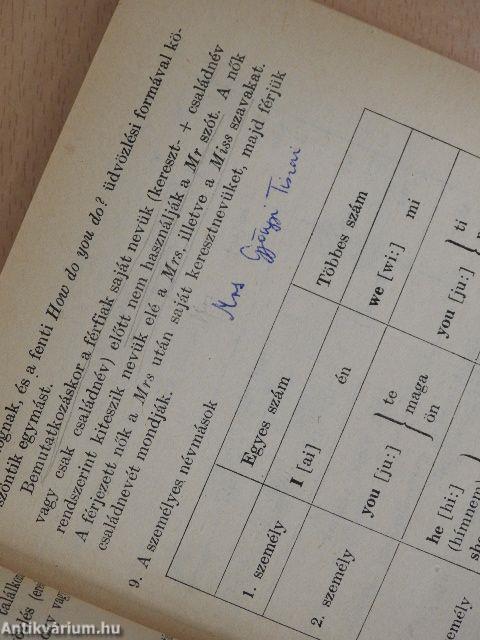 ognak, és a fenti How do you do? üdvözlési formával kö-
szöntik egymást.
Bemutatkozáskor a férfiak saját nevük (kereszt- + családnév
vagy csak családnév) előtt nem használják a Mr szót. A nők
rendszerint kiteszik nevük elé a Mrs. illetve a Miss szavakat.
A férjezett nők a Mrs után saját keresztnevüket, majd férjük
családnevét mondják.
Mrs Gyöngyi Tiszai
9. A személyes névmások
Egyes szám Többes szám
1. személy I [ai] én we [wi:] mi
2. személy you [ju:] } te maga ön you [ju:] } ti
emély he [hi:]
(hímnem)
she
találko
és (ere
vag
Antikvárium.hu